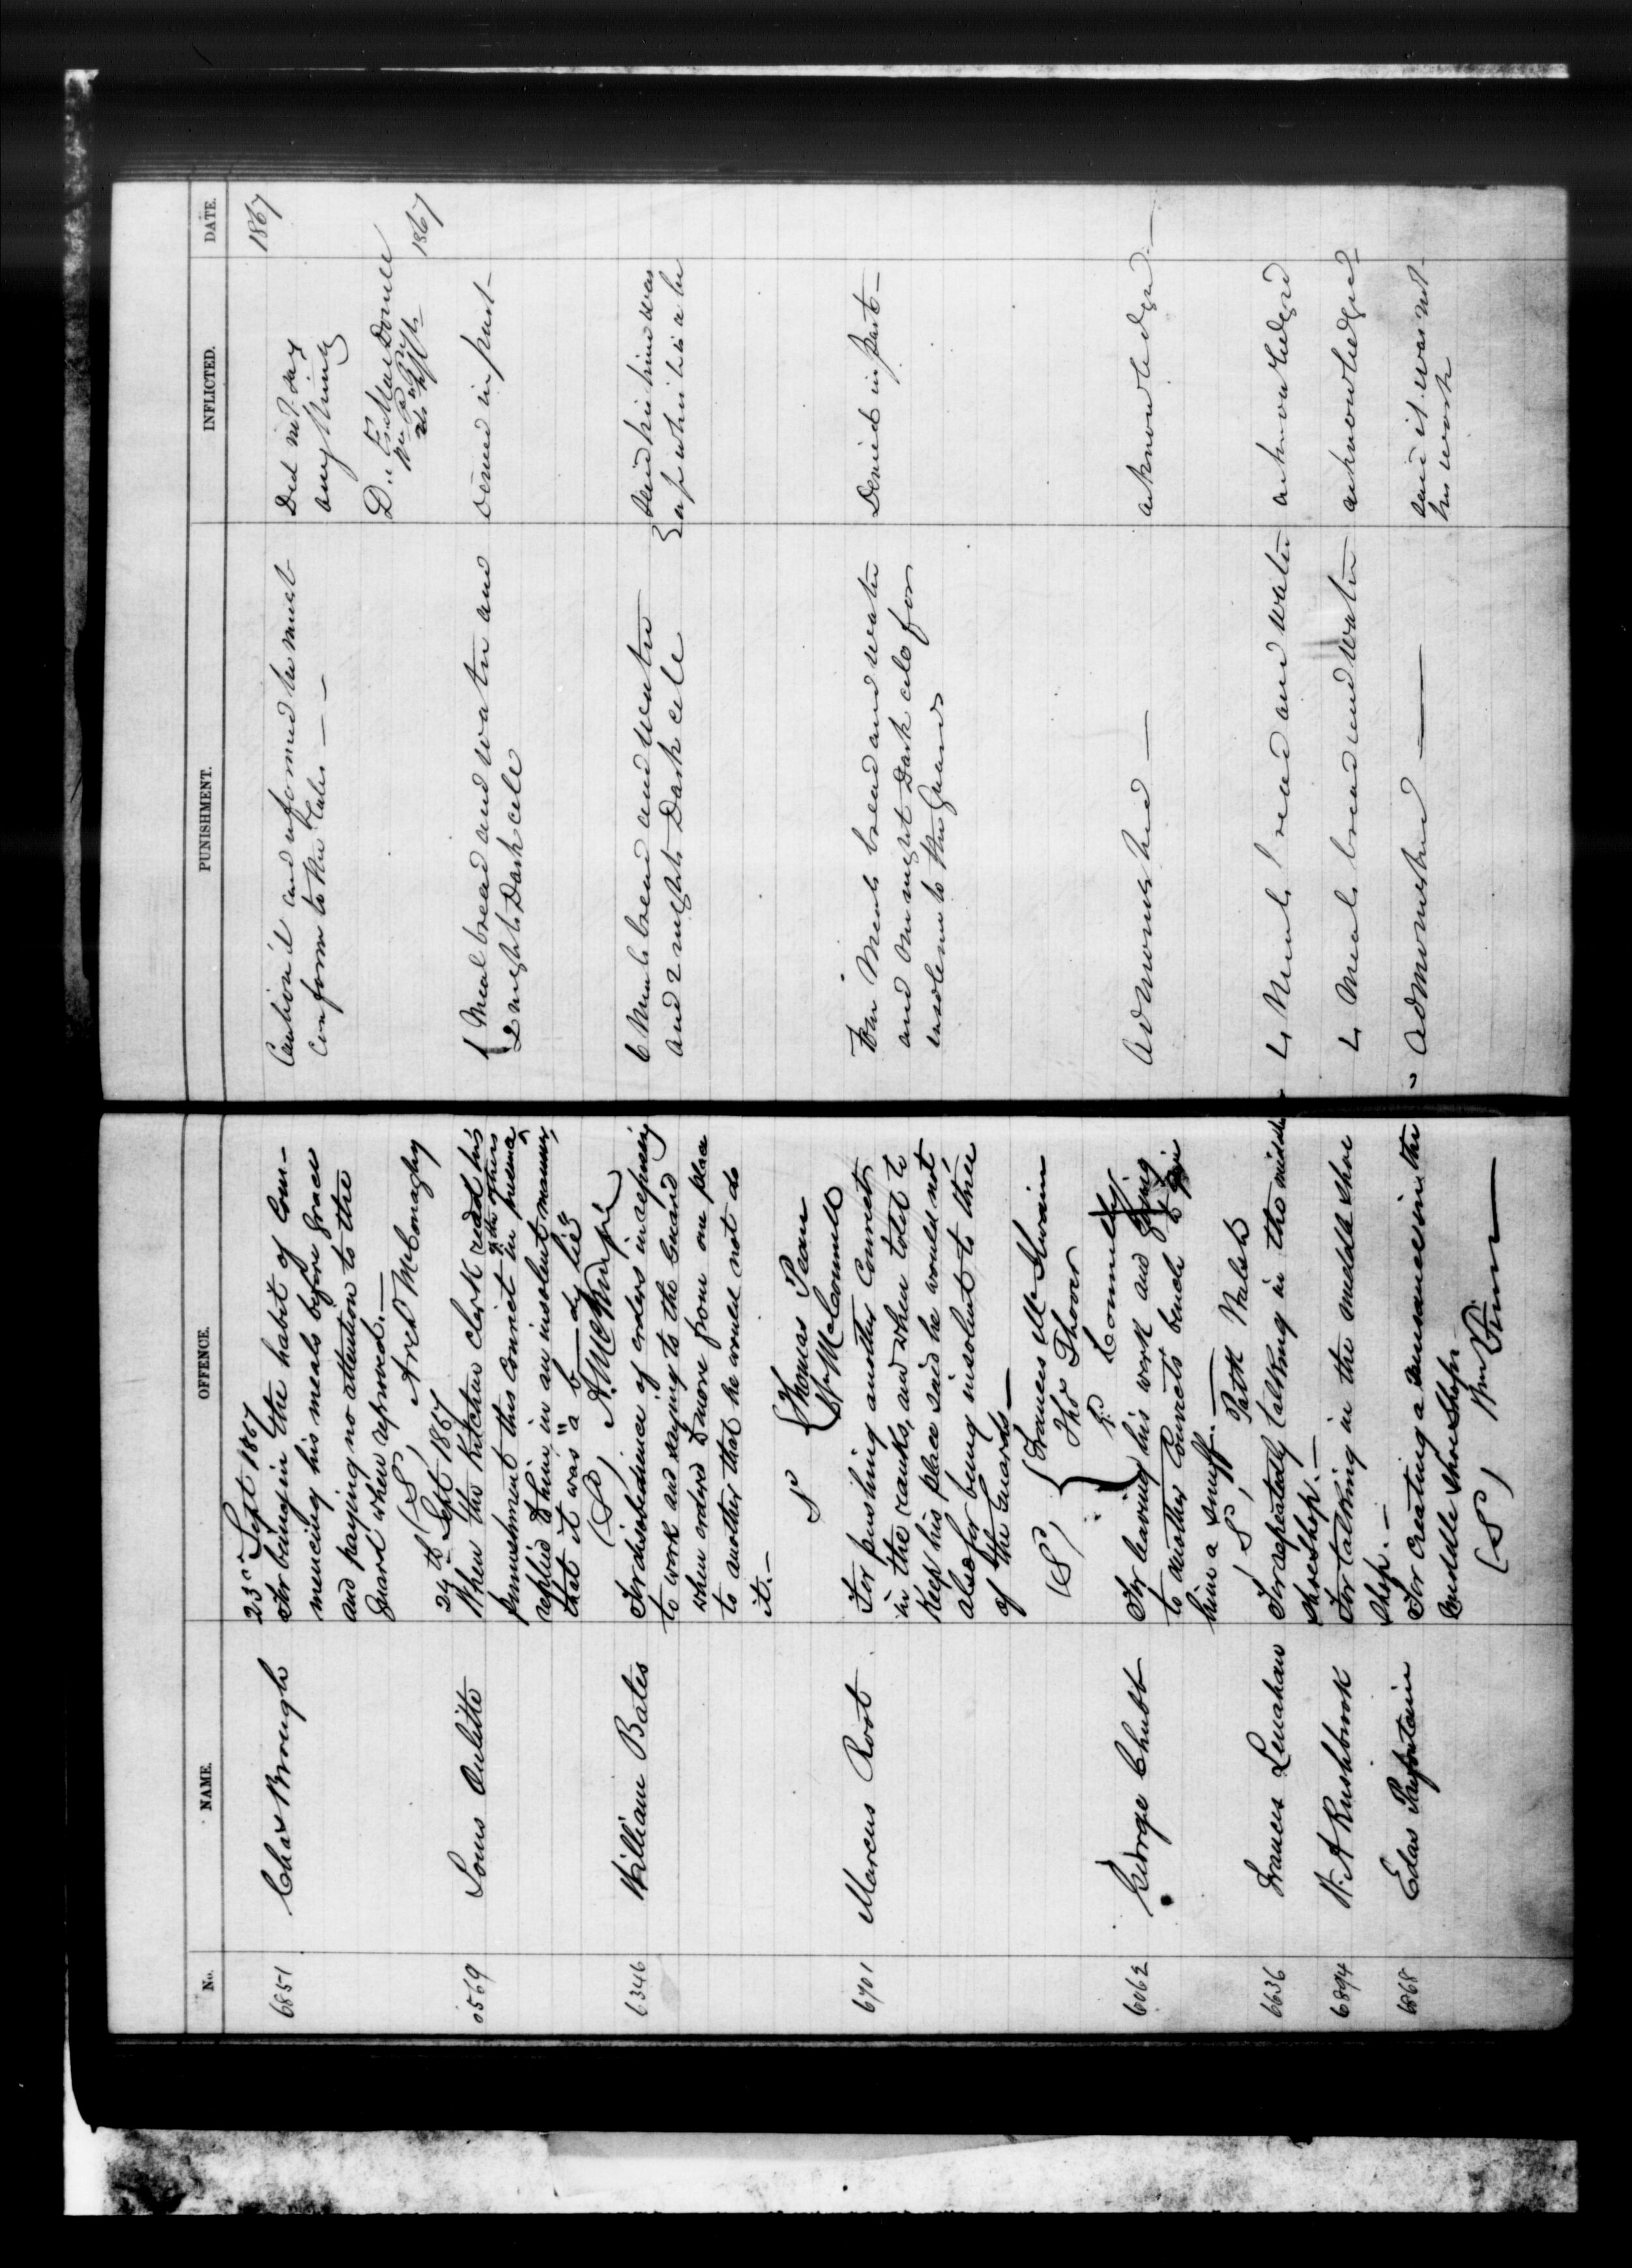 No. NAME. OFFENCE. PUNISHMENT. INFLICTED. DATE.
23d Sept 1867
1867
6851 Chas Brough For being in the habit of Com-
mencing his meals before grace
and paying no attention to the
Guard when reproved.—
(S), Arch McConaghy
Caution'd and informed he must
conform to the Rules — —
Did not say
anything
D. Æ MacDonell
24th Sept 1867
1867
Louis Oulette When the Kitchen Clerk read his
punishment this convict in presence
of the others
replied to him in an insolent manner,
that it was "a b—dy lie"
(S), A. McKenzie
Meal bread and water and
2 nights Dark cell
Denied in part—
6346 William Bates For disobedience of orders in refusing
to work and saying to the Guard
when ordered to move from one place
to another that he would not do
it.—
S Thomas Pean
Wm McConnell
6 Meals bread and water
and 2 nights Dark cell
6701 Marcus Root For pushing another Convict
in the ranks, and when told to
Keep his place said he would not
also for being insolent to three
of the Guards—
(S), Frances McIlwain
Thos Thover
Meals bread and water
and One night Dark cell for
insolence to the Guards
Denied in part—
6062 George Chubb For leaving his work and going
to another Convict's bench to give
him a snuff.—
S, Patk Walsh
Admonished —
acknowledged —
6636 Frances Lenahan For repeatedly talking in the middle
shoeshop.—
4 Meals bread and water
acknowledged
6894 W. A Rushbrook For talking in the middle shoe
shop.—
4 Meals bread and water
acknowledged
6868 For creating a nuisance in the
Middle Shoe Shop.
(S),
Admonished —
said it was not
his work